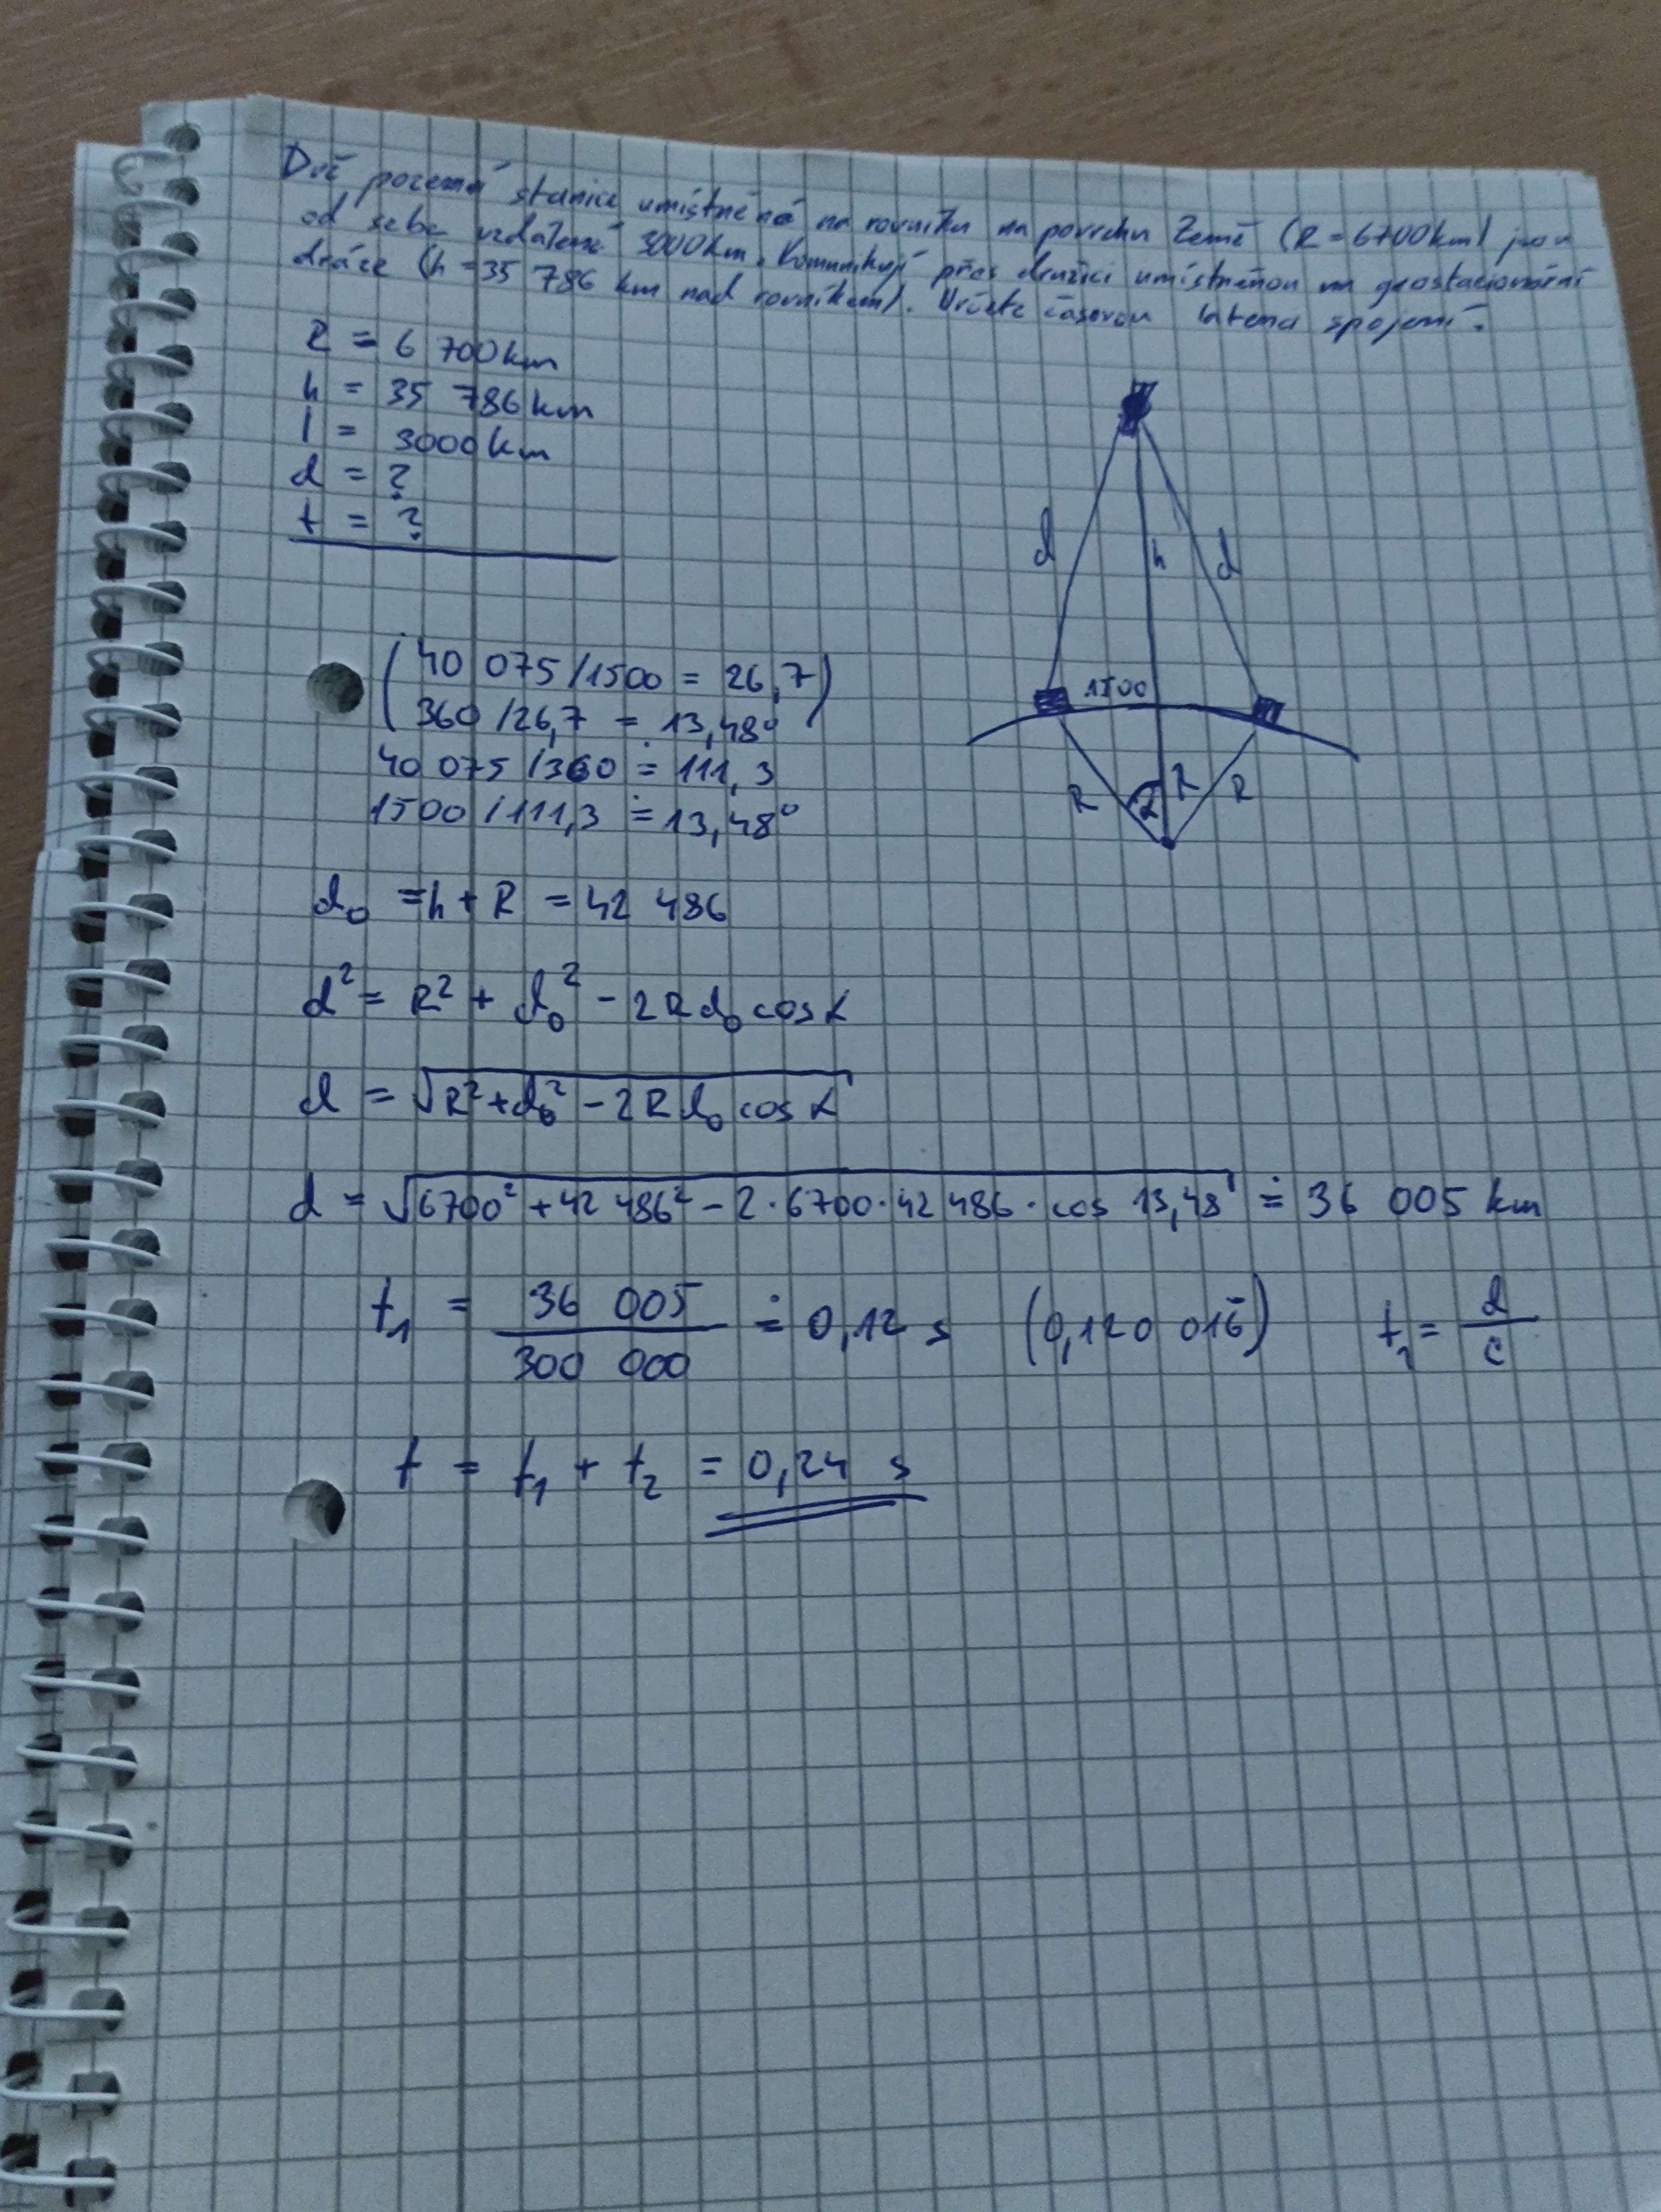 Dvě pozemní stanice umístněné na rovníku na povrchu Země (R = 6700 km) jsou
od sebe vzdálené 3000 km. Komunikují přes družici umístněnou na geostacionární
dráze (h = 35 786 km nad rovníkem). Určete časovou latenci spojení.
R = 6 700 km
h = 35 786 km
l = 3000 km
d = ?
t = ?
d
h
d
1500
R
α
R
R
(40 075 / 1500 = 26,7
360 / 26,7 ≐ 13,48°)
40 075 / 360 ≐ 111,3
1500 / 111,3 ≐ 13,48°
d₀ = h + R = 42 486
d² = R² + d₀² - 2Rd₀ cos α
d = √(R² + d₀² - 2Rd₀ cos α)
d = √(6700² + 42 486² - 2·6700·42 486·cos 13,48) ≐ 36 005 km
t₁ = 36 005 / 300 000 ≐ 0,12 s (0,120 016̄) t₁ = d / c
t = t₁ + t₂ = 0,24 s